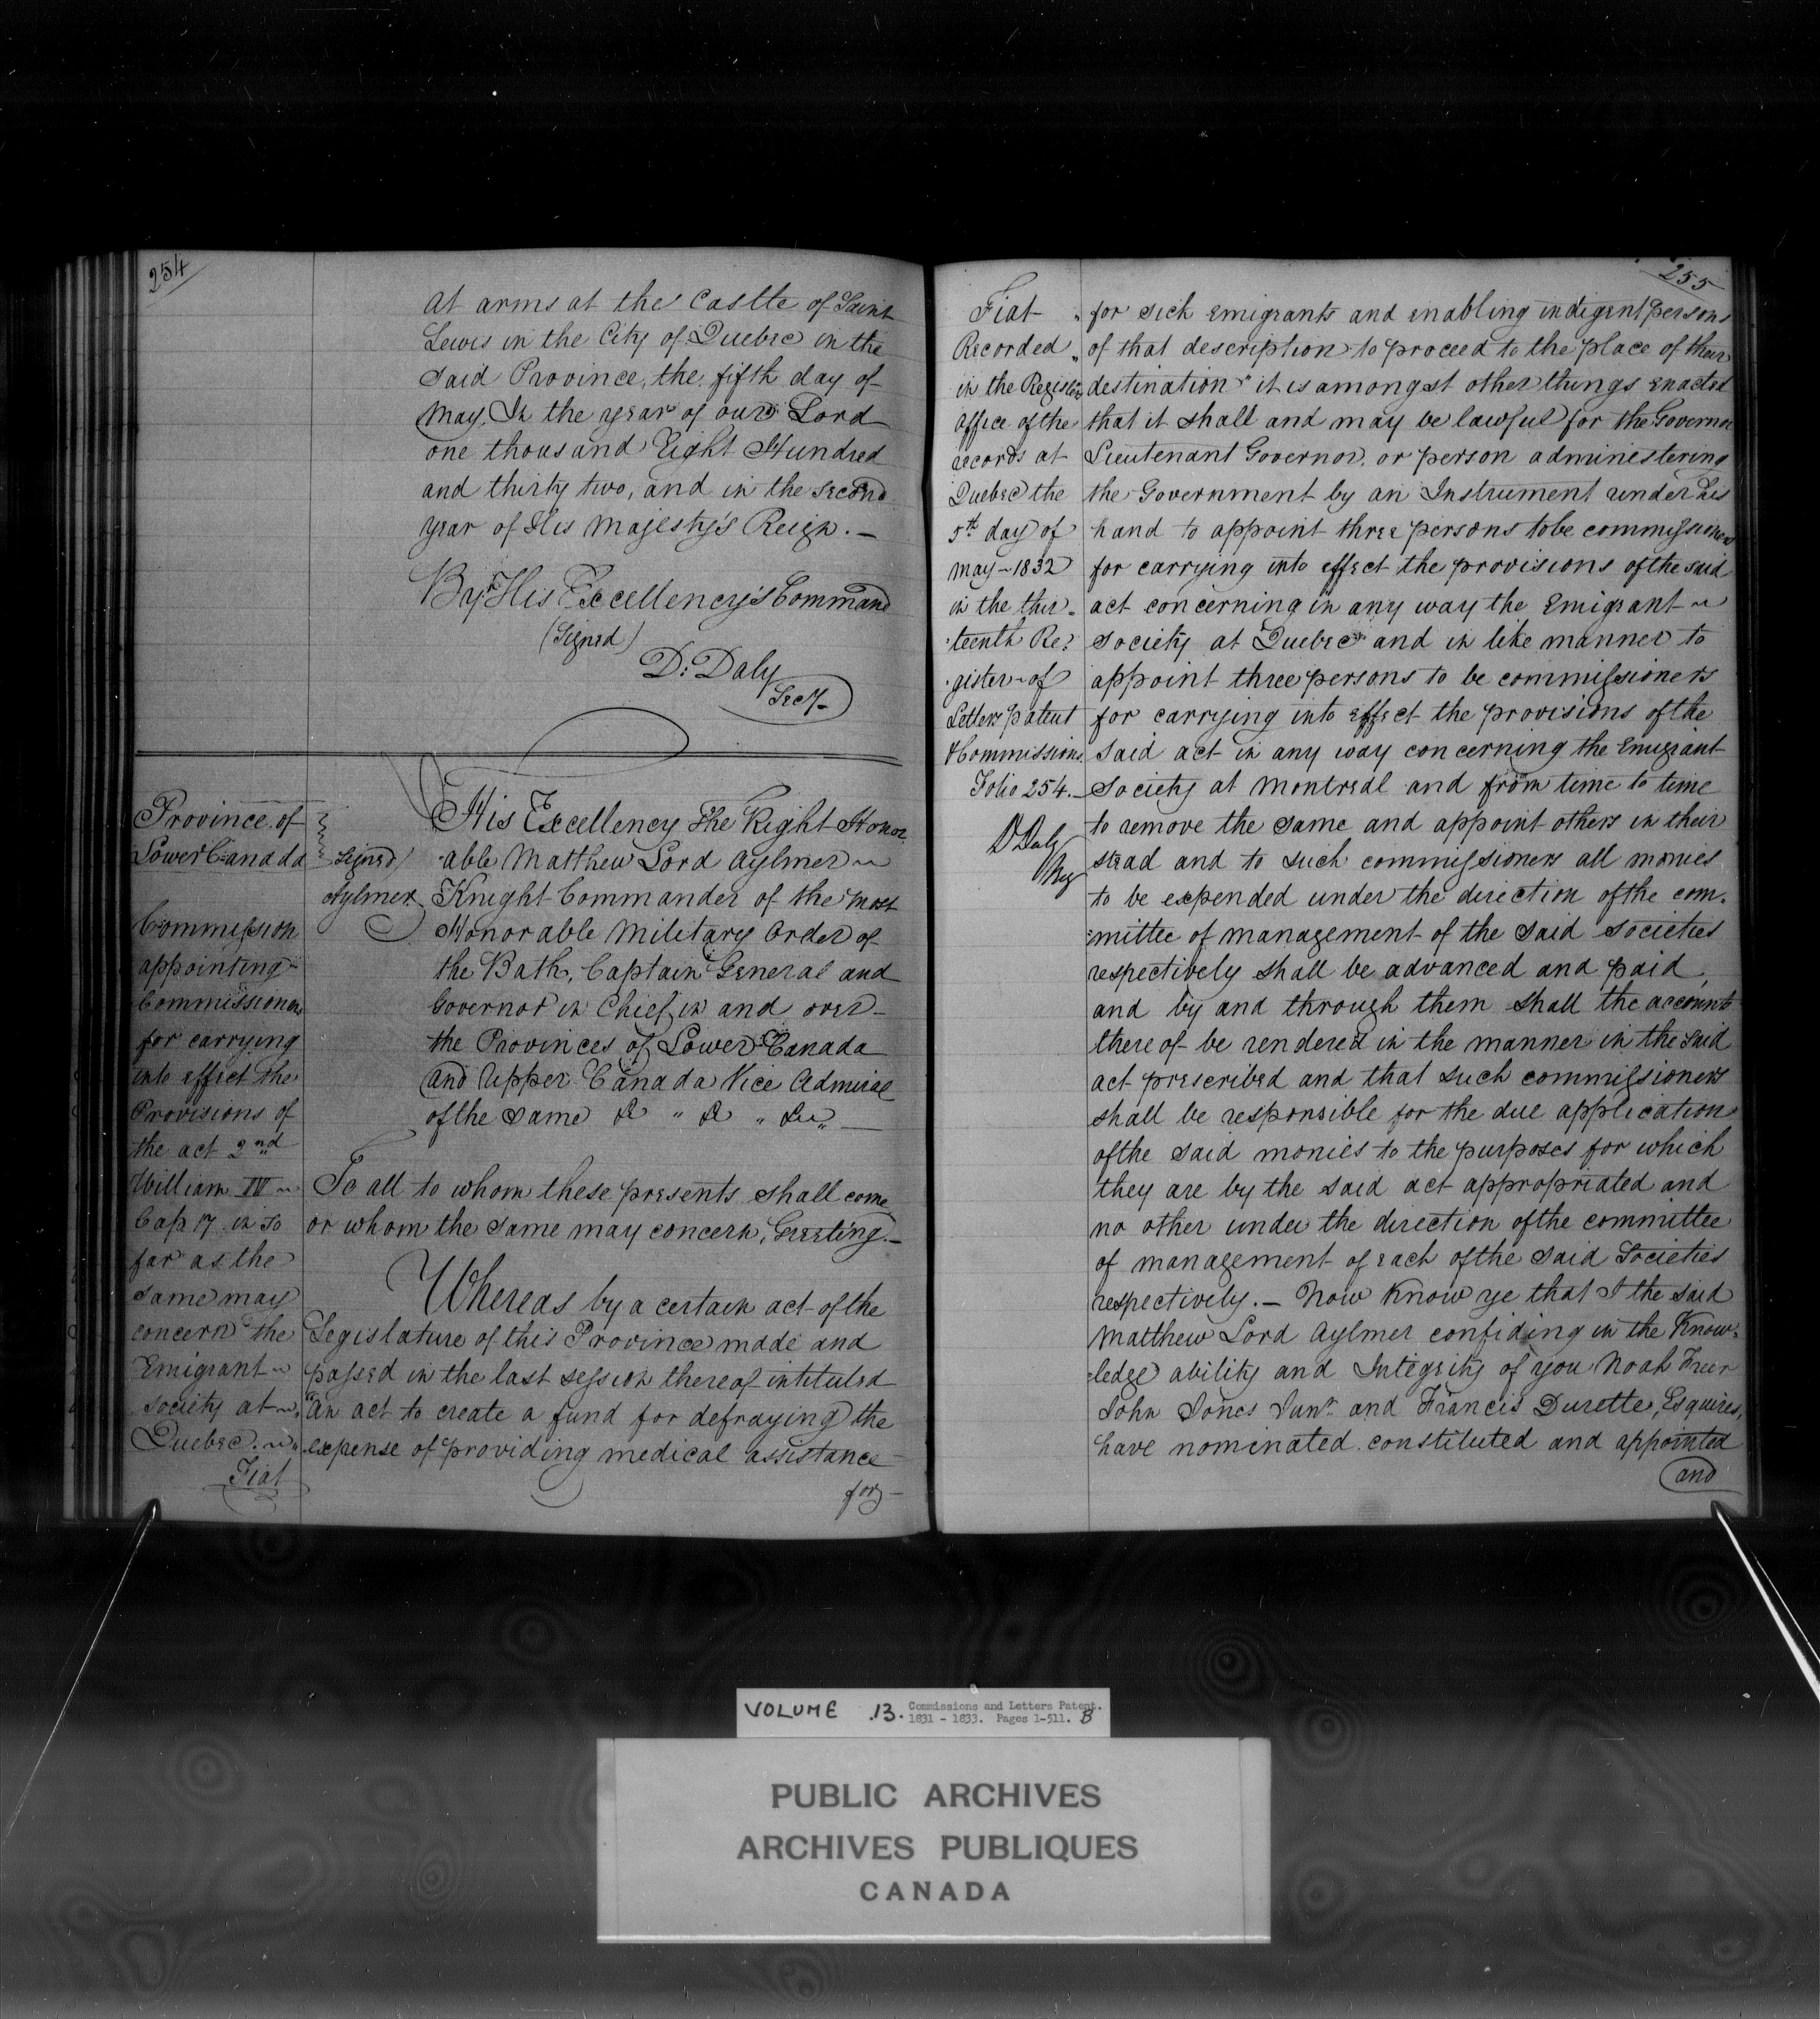 254
at arms at the Castle of Saint
Lewis in the City of Quebec in the
said Province, the fifth day of
May. In the year of our Lord
one thousand Eight Hundred
and thirty two, and in the second
year of His Majesty's Reign. —
By His Excellency's Command
(Signed)
D. Daly
Secy.
Province of
Lower Canada
Signed)
Aylmer
Commission
appointing
Commissioners
for carrying
into effect the
Provisions of
the act 2nd
William IV
Cap 17 in so
far as the
same may
concern the
Emigrant
Society at
Quebec.
Fiat
His Excellency The Right Honor
able Matthew Lord Aylmer
Knight Commander of the most
Honorable Military Order of
the Bath, Captain General and
Governor in Chief in and over
the Provinces of Lower Canada
and Upper Canada Vice Admiral
of the same & " & " &c" —
To all to whom these presents shall come
or whom the same may concern, Greeting. —
Whereas by a certain act of the
Legislature of this Province made and
passed in the last session thereof intituled
"An act to create a fund for defraying the
expense of providing medical assistance
for
255
Fiat
Recorded
in the Register
Office of the
records at
Quebec the
5th day of
May - 1832
in the thir-
teenth Re-
gister of
Letters patent
& Commissions.
Folio 254. —
D Daly
Reg
for sick emigrants and enabling indigent persons
of that description to proceed to the place of their
destination" it is amongst other things enacted
that it shall and may be lawful for the Governor
Lieutenant Governor, or person administering
the Government by an Instrument under his
hand to appoint three persons to be commissioners
for carrying into effect the provisions of the said
act concerning in any way the Emigrant
Society at Quebec and in like manner to
appoint three persons to be commissioners
for carrying into effect the provisions of the
said act in any way concerning the Emigrant
Society at Montreal and from time to time
to remove the same and appoint others in their
stead and to such commissioners all monies
to be expended under the direction of the com-
mittee of management of the said societies
respectively shall be advanced and paid,
and by and through them shall the accounts
there of be rendered in the manner in the said
act prescribed and that such commissioners
shall be responsible for the due application
of the said monies to the purposes for which
they are by the said act appropriated and
no other under the direction of the committee
of management of each of the said Societies
respectively. — Now Know ye that I the said
Matthew Lord Aylmer confiding in the Know-
ledge ability and Integrity of you Noah Freer
John Jones Junr. and Francis Durette, Esquires,
have nominated constituted and appointed
and
VOLUME 13. Commissions and Letters Patent.
1831 - 1833. Pages 1-511. B
PUBLIC ARCHIVES
ARCHIVES PUBLIQUES
CANADA